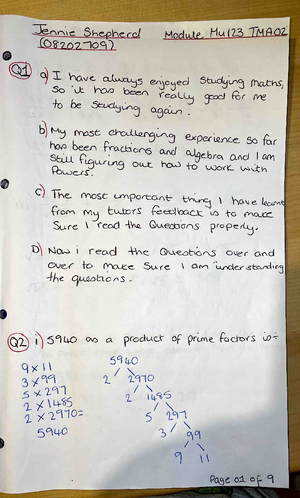 Jennie Shepherd Module, Mu123 TMA02
(08202709)
Q1 a) I have always enjoyed studying maths,
so it has been really good for me
to be studying again.
b) My most challenging experience so far
has been fractions and algebra and I am
still figuring out how to work with
Powers.
C) The most important thing I have learnt
from my tutors feedback is to make
Sure I read the Questions properly.
D) Now i read the Questions over and
over to make Sure I am understanding
the questions.
Q2 i) 5940 as a product of prime factors is=
5940
9 x 11
2 2970
3 x 99
2 1485
5 x 297
5 297
2 x 1485
3 99
2 x 2970=
9 11
5940
Page 01 of 9